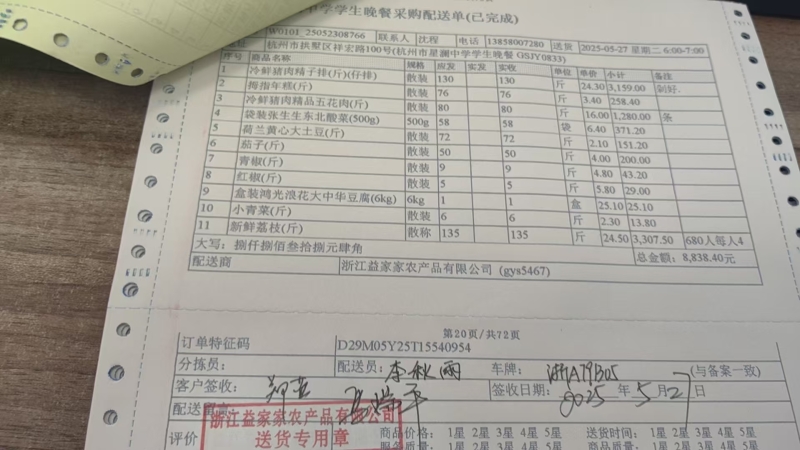 中学学生晚餐采购配送单(已完成)
W0101_25052308766 联系人 沈程 电话 13858007280 送货 2025-05-27 星期二 6:00-7:00
地址 杭州市拱墅区祥宏路100号(杭州市星澜中学学生晚餐 GSJY0833)
序号 商品名称 规格 应发 实发 实收 单位 单价 小计 备注
1 冷鲜猪肉精子排(斤)(仔排) 散装 130 130 斤 24.30 3,159.00 剁好.
2 拇指年糕(斤) 散装 76 76 斤 3.40 258.40
3 冷鲜猪肉精品五花肉(斤) 散装 80 80 斤 16.00 1,280.00 条
4 袋装张生生东北酸菜(500g) 500g 58 58 袋 6.40 371.20
5 荷兰黄心大土豆(斤) 散装 72 72 斤 2.10 151.20
6 茄子(斤) 散装 50 50 斤 4.00 200.00
7 青椒(斤) 散装 9 9 斤 4.80 43.20
8 红椒(斤) 散装 5 5 斤 5.80 29.00
9 盒装鸿光浪花大中华豆腐(6kg) 6kg 1 1 盒 25.10 25.10
10 小青菜(斤) 散装 6 6 斤 2.30 13.80
11 新鲜荔枝(斤) 散称 135 135 斤 24.50 3,307.50 680人每人4
大写: 捌仟捌佰叁拾捌元肆角 总金额: 8,838.40元
配送商 浙江益家家农产品有限公司 (gys5467)
第20页/共72页
订单特征码 D29M05Y25T15540954
分拣员: 配送员: 李秋雨 车牌: 浙A79B05 (与备案一致)
客户签收: 签收日期: 2025 年 5 月 27 日
配送留言
浙江益家家农产品有限公司
送货专用章
评价 商品价格: 1星 2星 3星 4星 5星 送货时间: 1星 2星 3星 4星 5星
服务质量: 1星 2星 3星 4星 5星